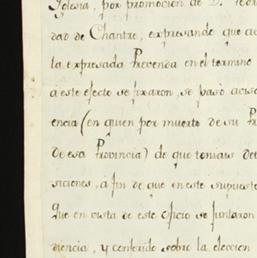 Iglesia, por promocion de D.
dad de Chantre, expresando que
la expresada Prevenda en el termino
á este efecto se fixaron, se pasó
encia (en quien por muerte de su
de esa Provincia) de que tomais
siciones, á fin de que en este supuesto
que en vista de este oficio se juntaron
diencia, y conferido sobre la eleccion